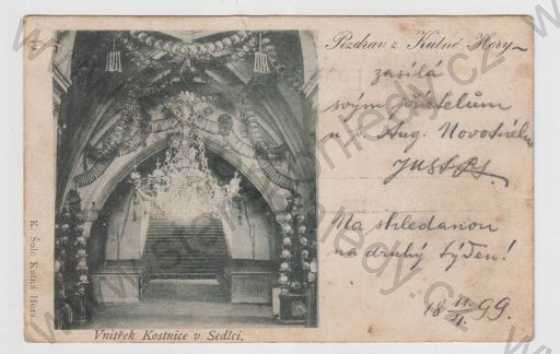 Pozdrav z Kutné Hory
zasílá
svým přátelům
u p. Aug. Novotného
Na shledanou
na druhý týden!
18 99
K. Šolc Kutná Hora.
Vnitřek Kostnice v Sedlci.